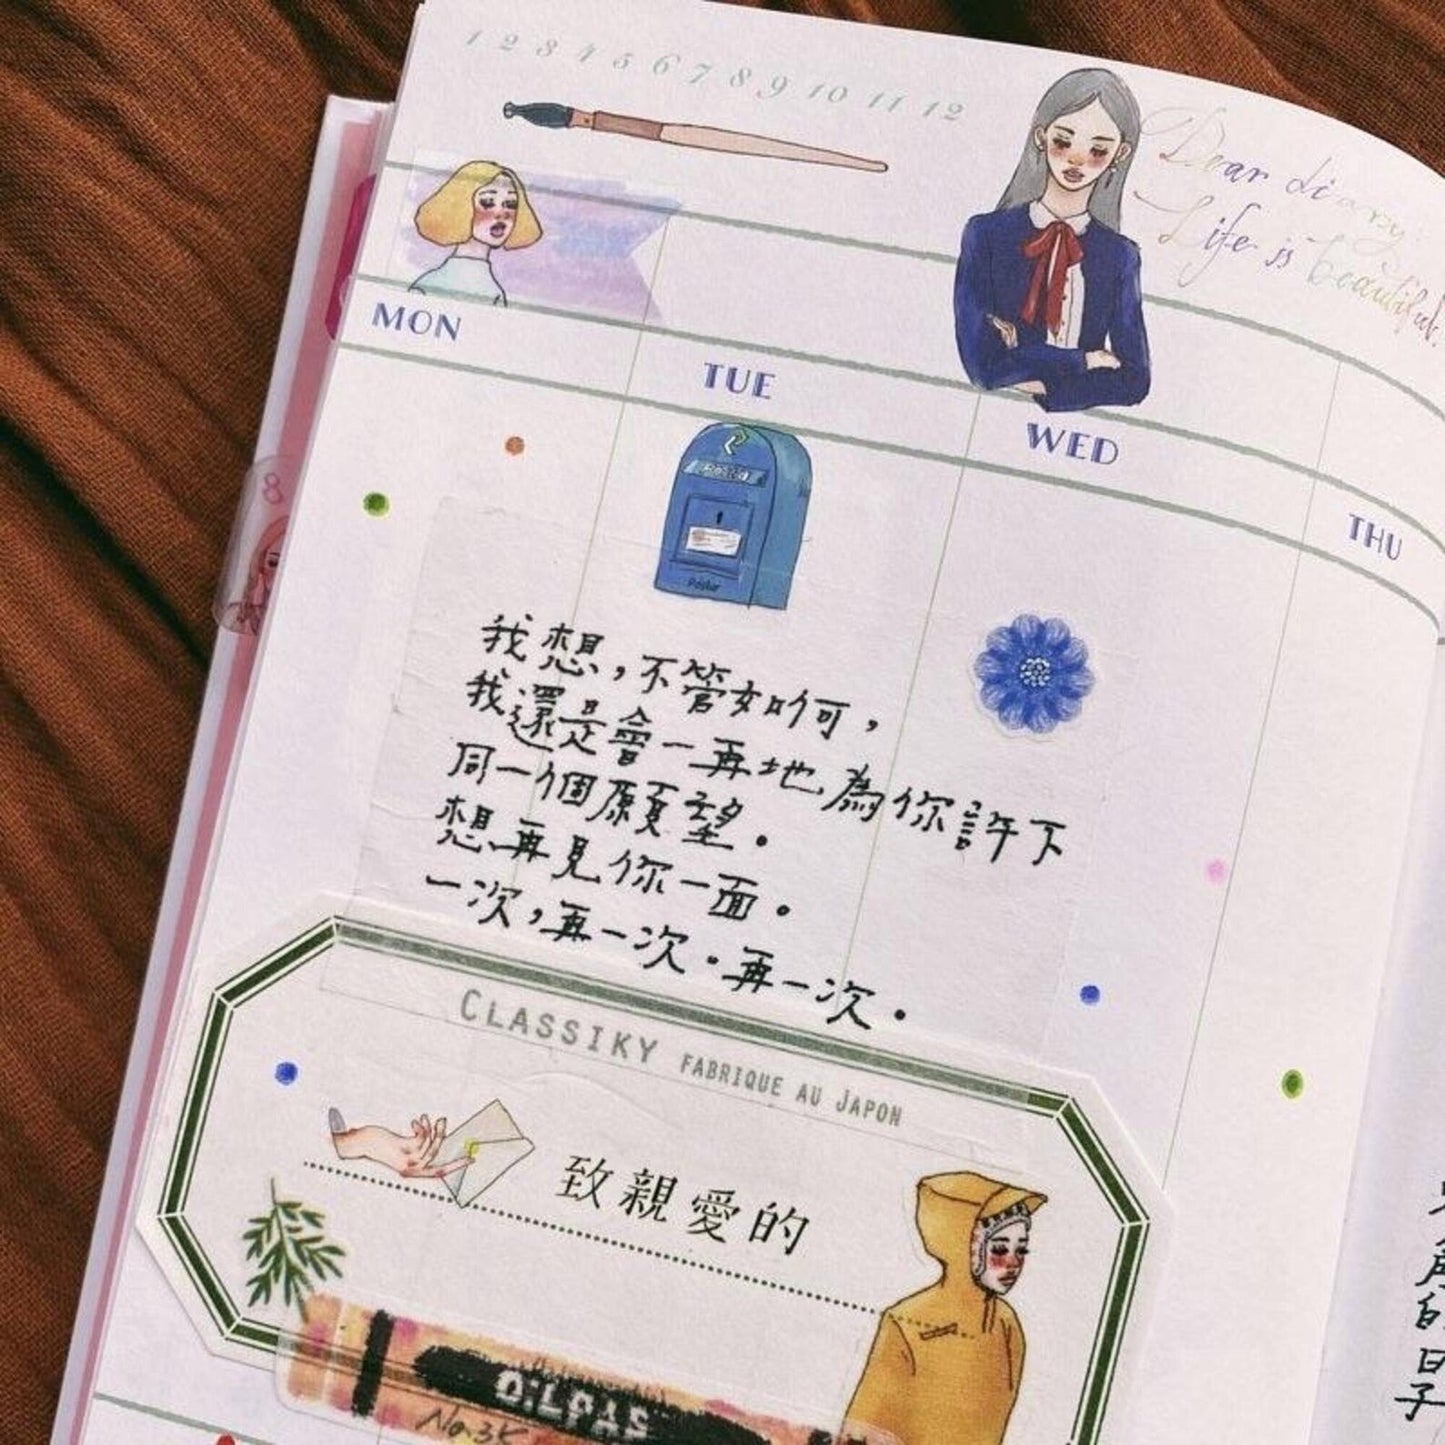 1 2 3 4 5 6 7 8 9 10 11 12
Dear diary:
Life is beautiful.
MON
TUE
WED
THU
8
我想，不管如何，
我還是會一再地為你許下
同一個願望。
想再見你一面。
一次，再一次。再一次。
CLASSIKY FABRIQUE AU JAPON
致親愛的
OiL PAS
No.3
的日子